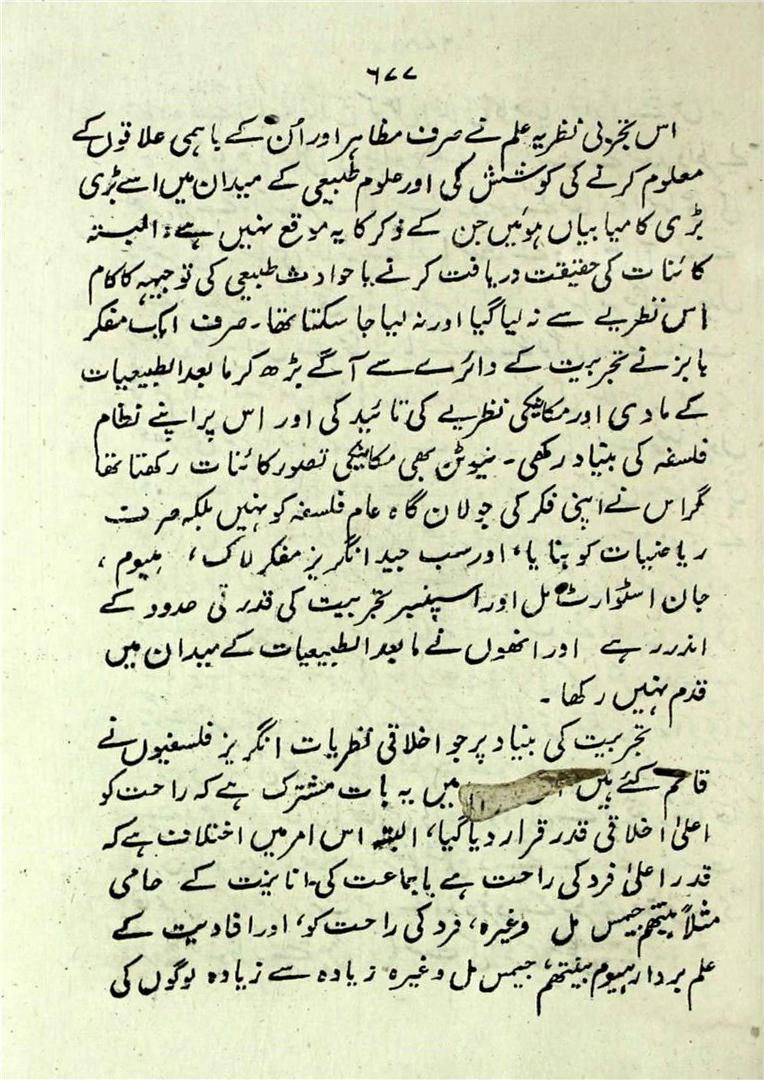 ۶۷۷
اس تجربی نظریہ علم نے صرف مظاہر اور اُن کے باہمی علاقوں کے
معلوم کرنے کی کوشش کی اور علوم طبیعی کے میدان میں اسے بڑی
بڑی کامیابیاں ہوئیں جن کے ذکر کا یہ موقع نہیں ہے، البتہ
کائنات کی حقیقت دریافت کرنے یا حوادث طبیعی کی توجیہہ کا کام
اس نظریے سے نہ لیا گیا اور نہ لیا جا سکتا تھا۔ صرف ایک مفکر
ہابز نے تجربیت کے دائرے سے آگے بڑھ کر ما بعد الطبیعیات
کے مادی اور میکانیکی نظریے کی تائید کی اور اس پر اپنے نظام
فلسفہ کی بنیاد رکھی۔ نیوٹن بھی میکانیکی تصور کائنات رکھتا تھا
مگر اس نے اپنی فکر کی جولان گاہ عام فلسفہ کو نہیں بلکہ صرف
ریاضیات کو بنایا، اور سب جید انگریز مفکر لاک، ہیوم،
جان اسٹوارٹ مل اور اسپنسر تجربیت کی قدرتی حدود کے
اندر رہے اور انھوں نے ما بعد الطبیعیات کے میدان میں
قدم نہیں رکھا۔
تجربیت کی بنیاد پر جو اخلاقی نظریات انگریز فلسفیوں نے
قائم کئے ہیں میں یہ بات مشترک ہے کہ راحت کو
اعلیٰ اخلاقی قدر قرار دیا گیا، البتہ اس امر میں اختلاف ہے کہ
قدر اعلیٰ فرد کی راحت ہے یا جماعت کی۔ انانیت کے حامی
مثلاً بینتھم جیمس مل وغیرہ، فرد کی راحت کو، اور افادیت کے
علم بردار ہیوم بینتھم، جیمس مل وغیرہ زیادہ سے زیادہ لوگوں کی